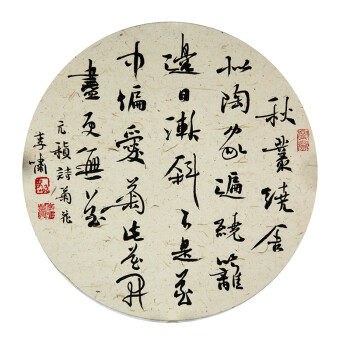 秋叢繞舍
似陶家遍繞籬
邊日漸斜不是花
中偏愛菊此花開
盡更無花
元稹詩菊花
李嘯